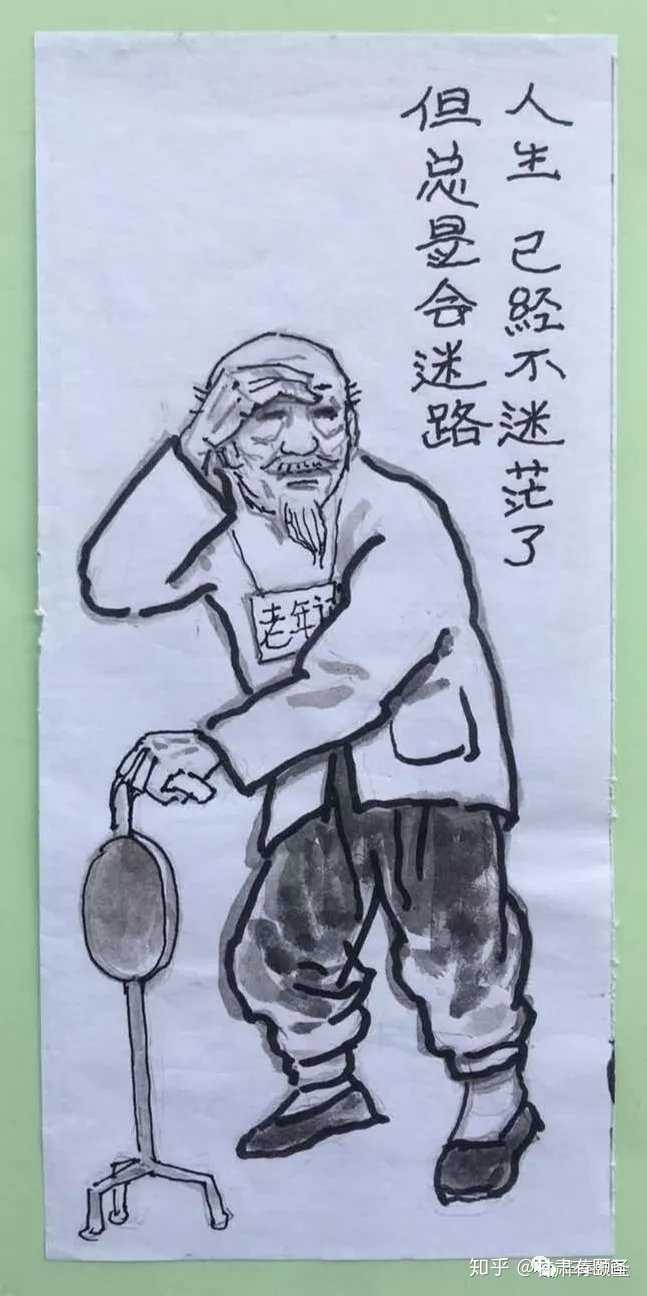 人生 已经不迷茫了
但总是会迷路
老年证
知乎 @